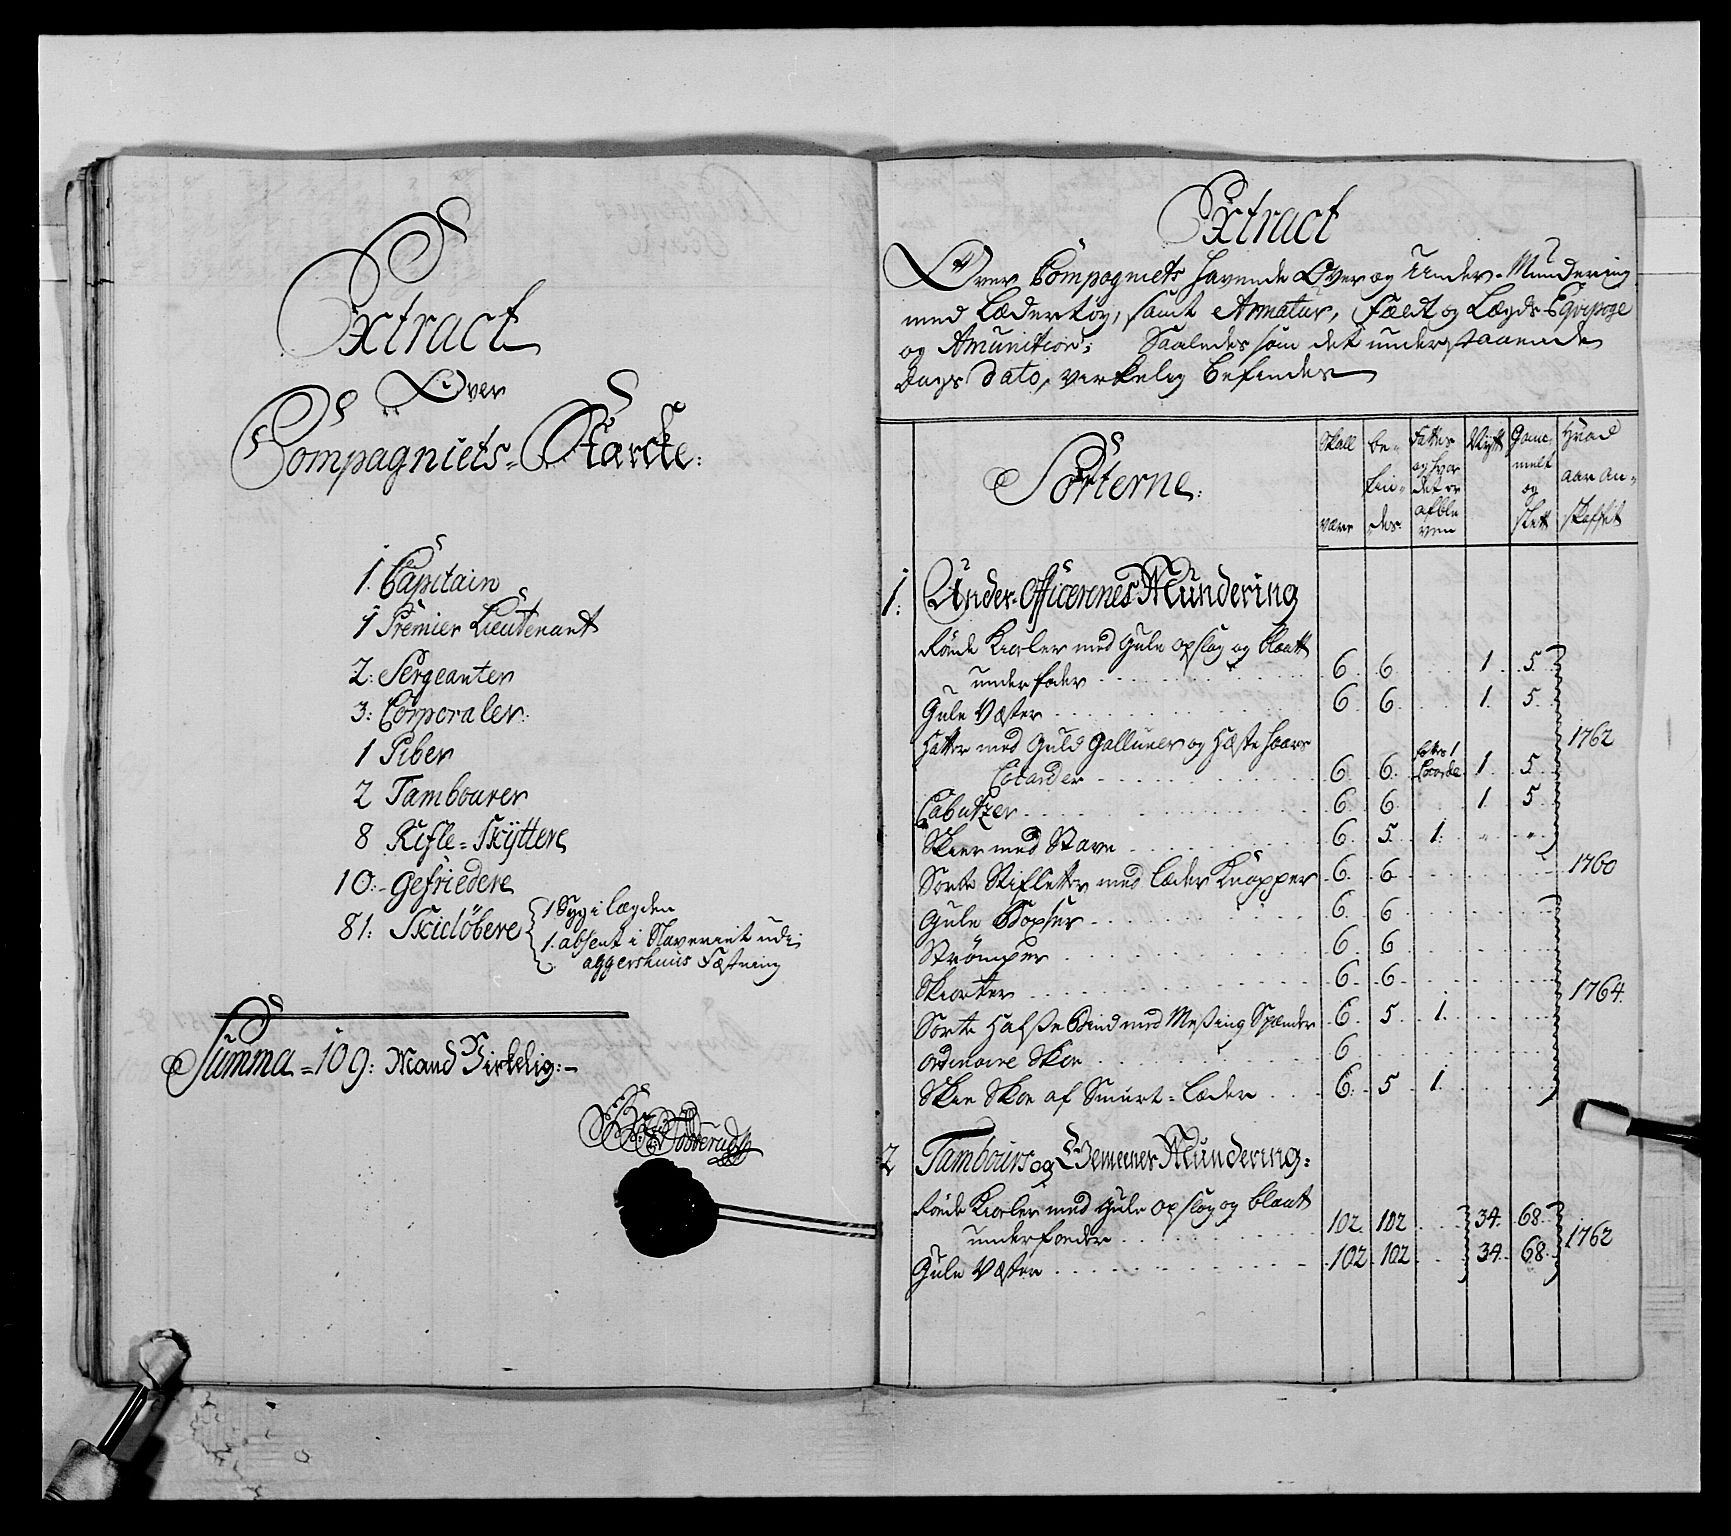 Extract
Over
Compagniets Stärcke:
1. Capitain
1 Premier Lieutenant
2: Sergeanter
3: Corporaler:
1 Piber
2 Tambourer
8 Rifle-Skÿttere
10:- Gefriedere
81: Skielöbere { 1 Syg i lægden
1. absent i Slaveriet udi
aggershuus Fæstning
Summa = 109: Mand Virkelig:-
Extract
Over Compagniets havende Over og Under-Mundering
med Lædertøy, samt Armatur, Fældt og Lægds Eqvipage
og Amunition; Saaledes som det understaaende
Dags Dato, Verkelig befindes
Sorterne:
Skall være
be-fin-des
Fattes og hvor det er afbleven
Nÿtt
Gammelt og slett
Hvad aar an-skaffet
1: Under-Officerenes Mundering
Røde Kioler med Gule opslag og blaatt
underfoder 6 6 1 5
Gule Væster 6 6 1. 5 1762
Hatter med Guld Galluner og Hæste haars
Cocarder 6 6 fattes 1 Cocarde 1 5
Cabutzer 6 6 1 5
Skier med Stave 6 5 1. " "
Sorte Stifletter med læder Knapper 6 6 1760
Gule Boxser 6 6
Strømper 6 6
Skiorter 6 6 1764
Sorte Halsse Bind med Messing Spænder 6 5 1.
Ordinaire Skoe 6
Skie Skoe af Smurt-Læder 6 5 1
2 Tambours og Gemenes Mundering:
Røde Kioler med Gule opslag og blaatt
underfoeder 102 102 34 68 1762
Gule Væster 102 102 34 68